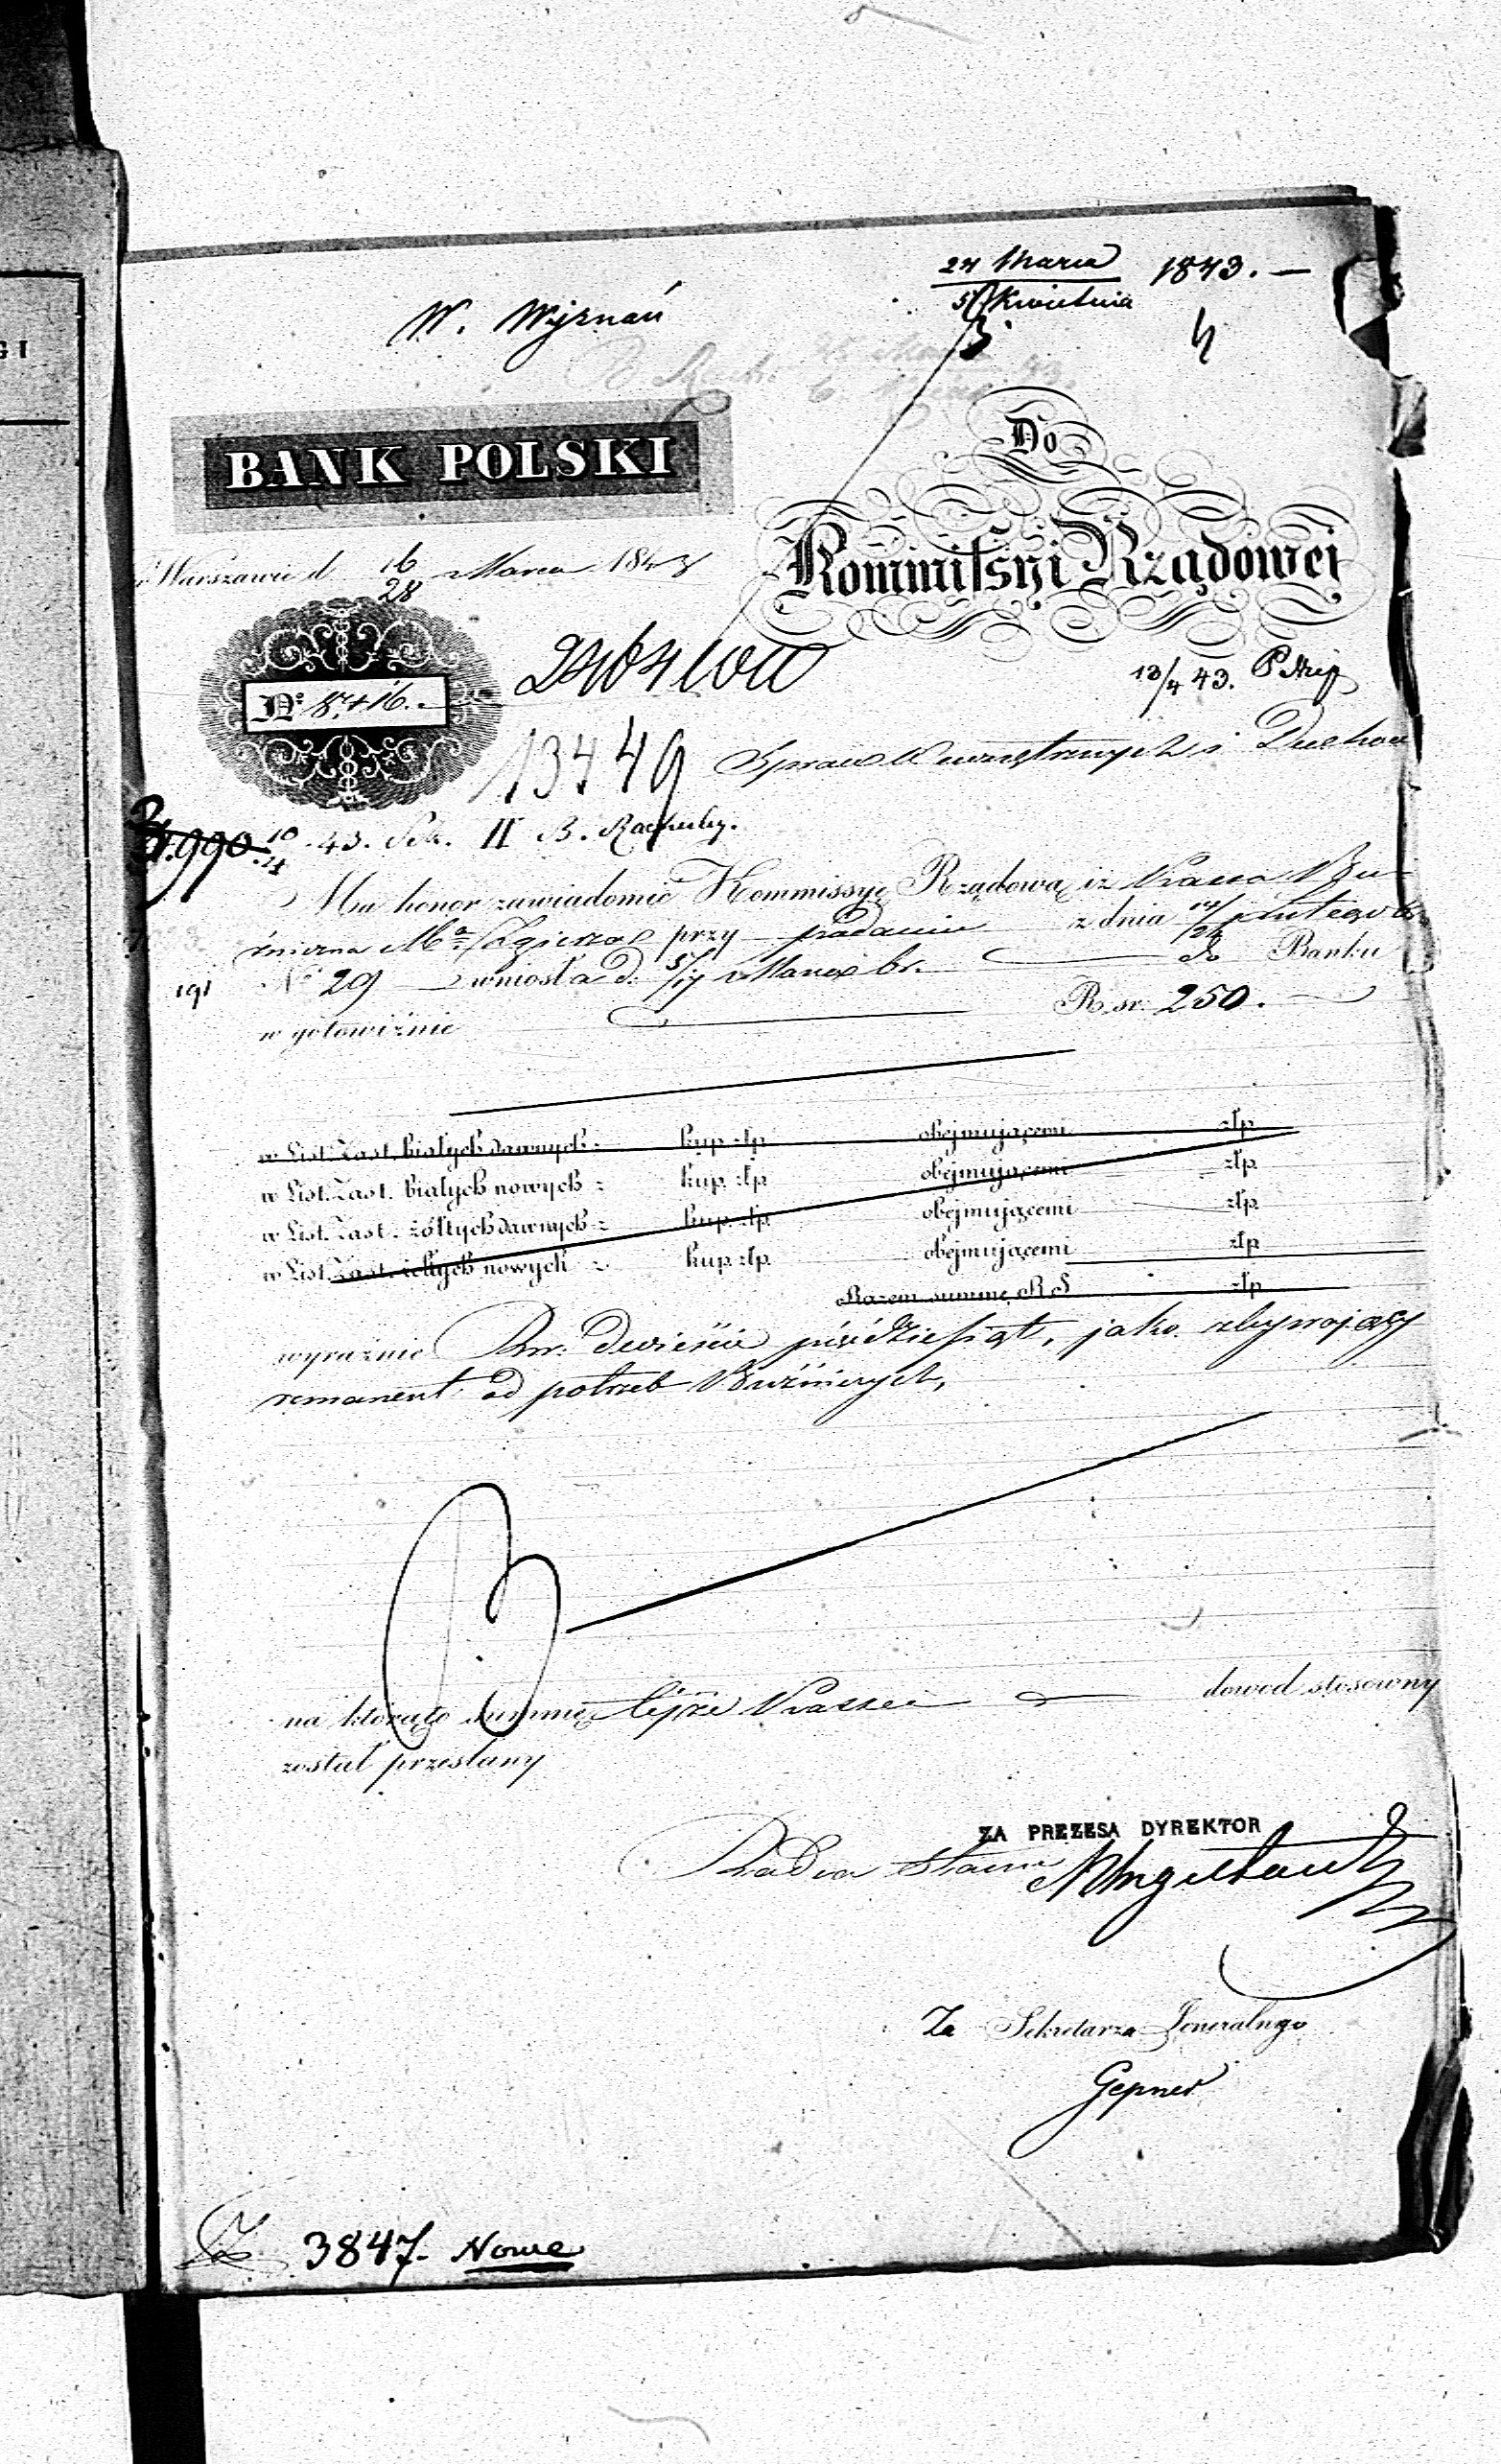 24 Marca 1843. —
5 Kwietnia
W. Wyznań
BANK POLSKI
Do
Kommissyi Rządowej
w Warszawie d. 16/28 Marca 1843
No. 8,416.
13/4 43.
13449
Spraw Wewnętrznych i Duchow
990 10/4 43. II B.
Ma honor zawiadomić Kommissyę Rządową iż Kassa Bó-
źniczna Mta. Zgierza przy podaniu z dnia 12/24 Lutego br
191 No 29 wniosła d. 5/17 Marca br. do Banku
w gotowiźnie R. sr. 250.
w List. Zast. białych dawnych : kup. złp. obejmującemi złp.
w List. Zast. białych nowych : kup. złp. obejmującemi złp.
w List. Zast. żółtych dawnych : kup. złp. obejmującemi złp.
w List. Zast. żółtych nowych : kup. złp. obejmującemi złp.
Razem summę RS złp.
wyraźnie Rsr. dwieście pięćdziesiąt, jako zbywający
remanent od potrzeb Bóźniczych,
na którąto summę tejże Kassie dowód stosowny
został przesłany
ZA PREZESA DYREKTOR
Radca Stanu
Za Sekretarza Jeneralnego
Gepner
3847. Nowe